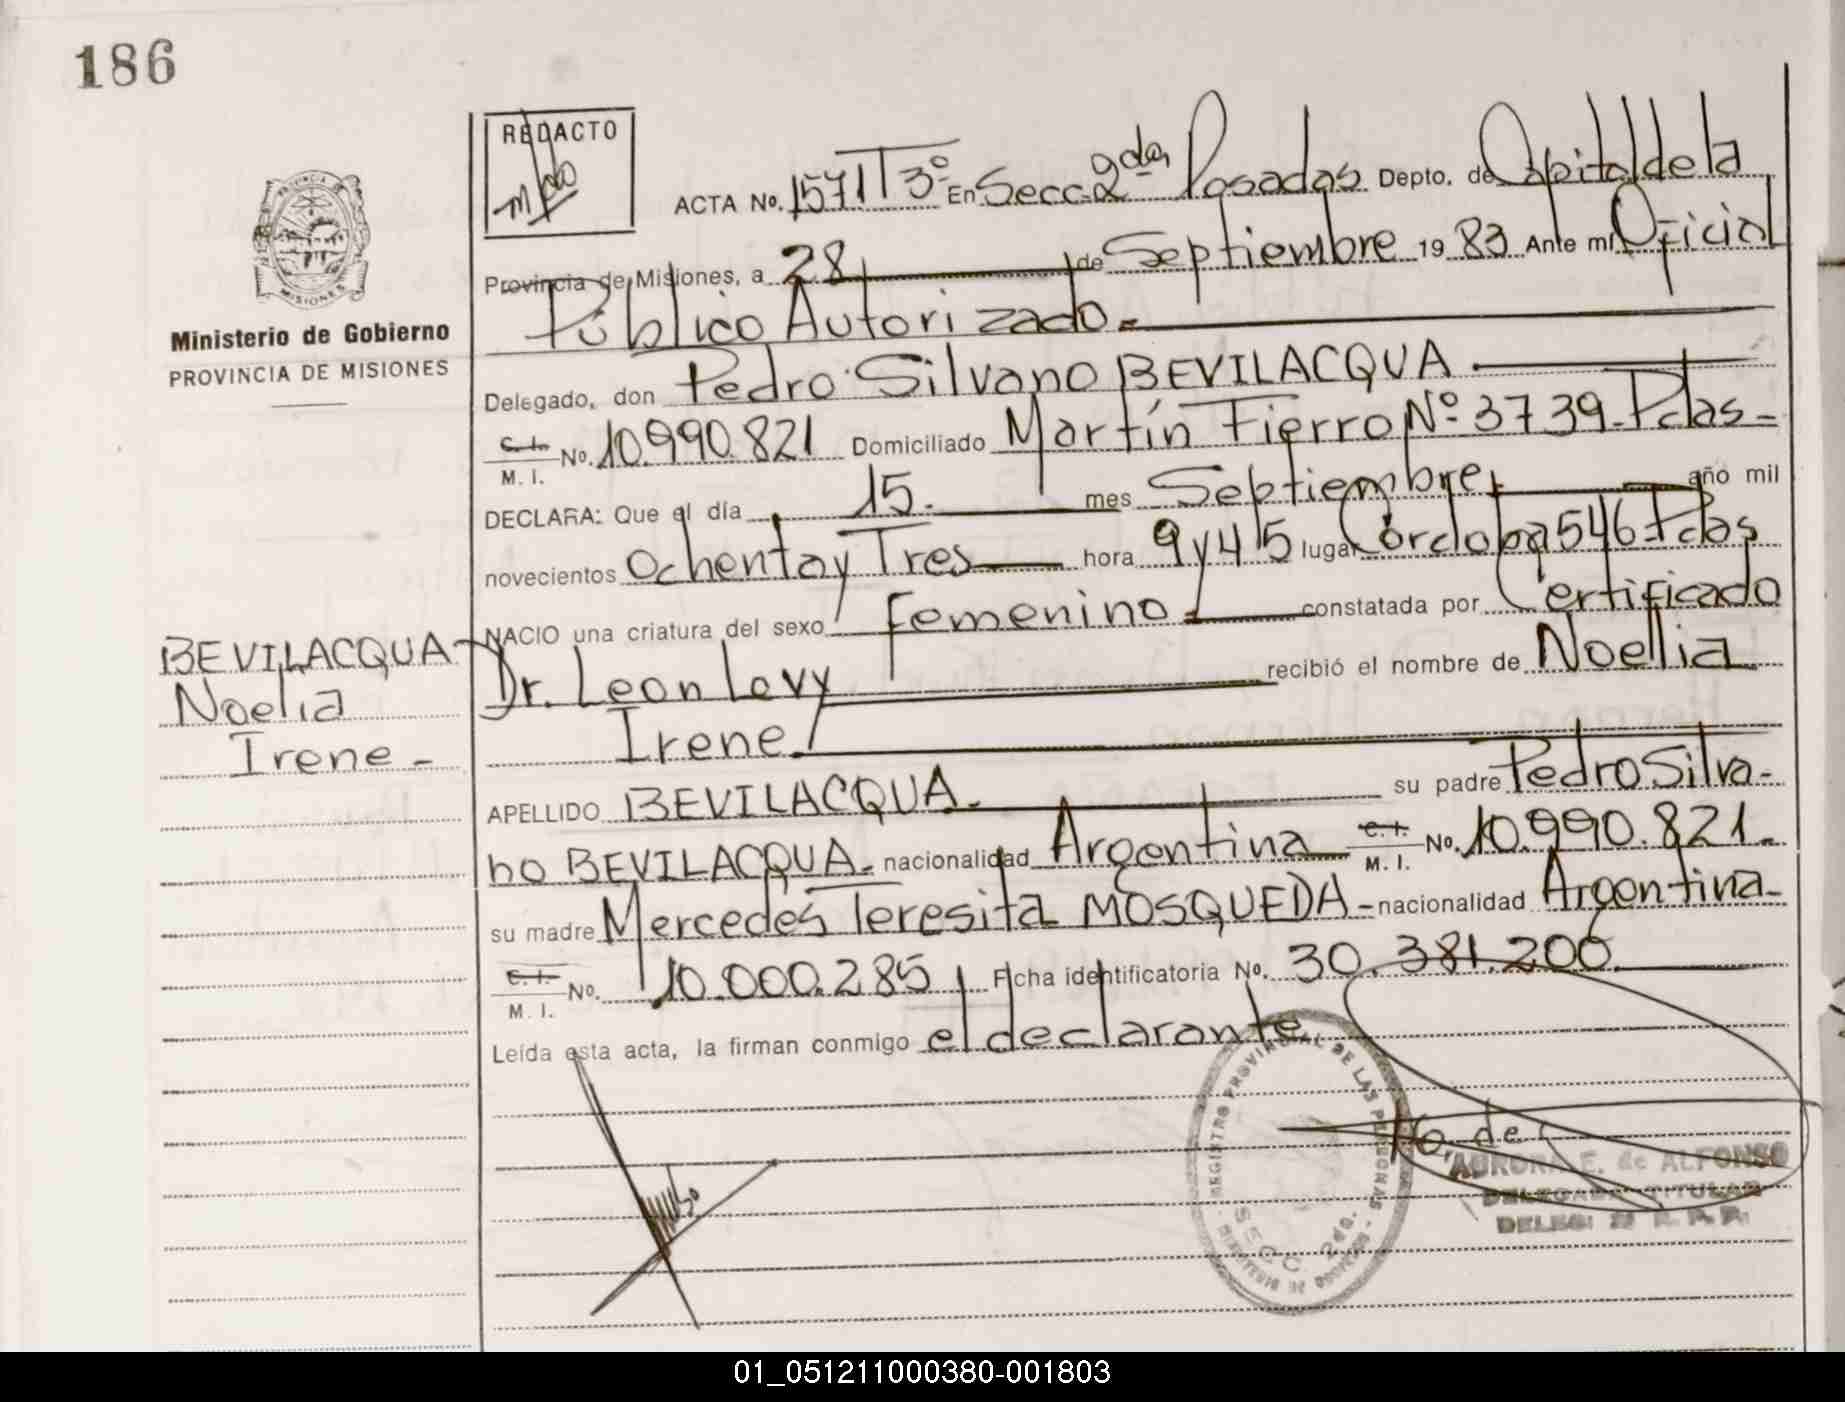 186
REDACTO
PROVINCIA DE
MISIONES
Ministerio de Gobierno
PROVINCIA DE MISIONES
ACTA No. 1571 T 3º En Secc. 2da Posadas Depto. de Capital de la
Provincia de Misiones, a 28 de Septiembre 19 83 Ante mí Oficial
Público Autorizado.=
Delegado, don Pedro Silvano BEVILACQUA
C.I. / M. I. No. 10.990.821 Domiciliado Martín Fierro Nº 3739-Pdas-
DECLARA: Que el día 15. mes Septiembre año mil
novecientos Ochenta y Tres hora 9 y 45 lugar Córdoba 546-Pdas
NACIO una criatura del sexo Femenino constatada por Certificado
Dr. Leon Levy recibió el nombre de Noelia
Irene
BEVILACQUA
Noelia
Irene -
APELLIDO BEVILACQUA. su padre Pedro Silva-
no BEVILACQUA. nacionalidad Argentina C.I. / M. I. No. 10.990.821.
su madre Mercedes Teresita MOSQUEDA - nacionalidad Argentina-
C.I. / M. I. No. 10.000.285 Ficha identificatoria No. 30.381.200
Leída esta acta, la firman conmigo el declarante
REGISTRO PROVINCIAL DE LAS PERSONAS
SECC. 2da.
AURORA E. de ALFONSO
DELEGADA TITULAR
01_051211000380-001803